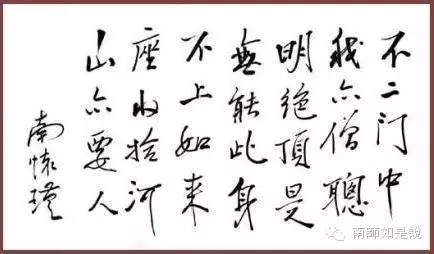 不二门中
我亦僧聰
明絕頂是
無能此身
不上如来
座收拾河
山亦要人
南懷瑾
南師如是說